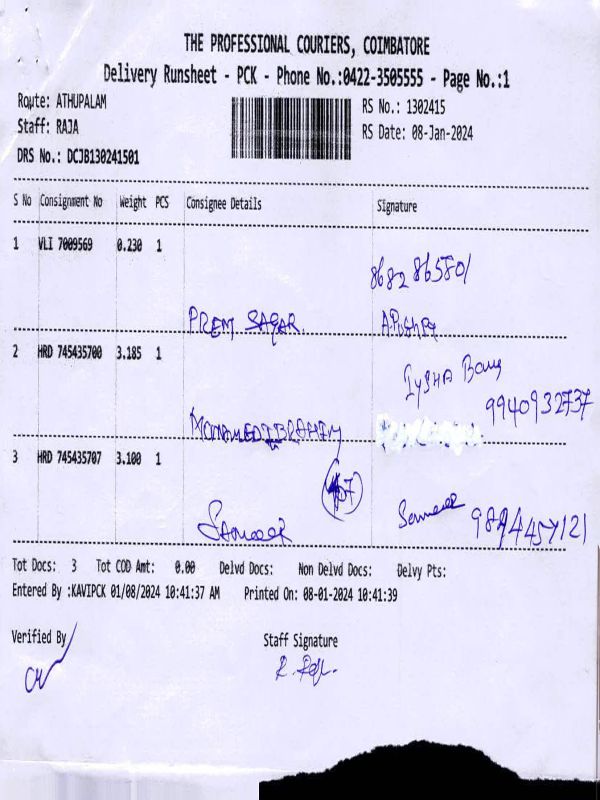 THE PROFESSIONAL COURIERS, COIMBATORE
Delivery Runsheet - PCK - Phone No.:0422-3505555 - Page No.:1
Route: ATHUPALAM
RS No.: 1302415
Staff: RAJA
RS Date: 08-Jan-2024
DRS No.: DCJB130241501
S No Consignment No Weight PCS Consignee Details Signature
1 VLI 7009569 0.230 1
8682865801
PREM SAGAR
2 HRD 745435700 3.185 1
9940932737
MOHAMED IBRAHIM
3 HRD 745435707 3.100 1
Sameer Sameer 9894457121
Tot Docs: 3 Tot COD Amt: 0.00 Delvd Docs: Non Delvd Docs: Delvy Pts:
Entered By :KAVIPCK 01/08/2024 10:41:37 AM Printed On: 08-01-2024 10:41:39
Verified By Staff Signature